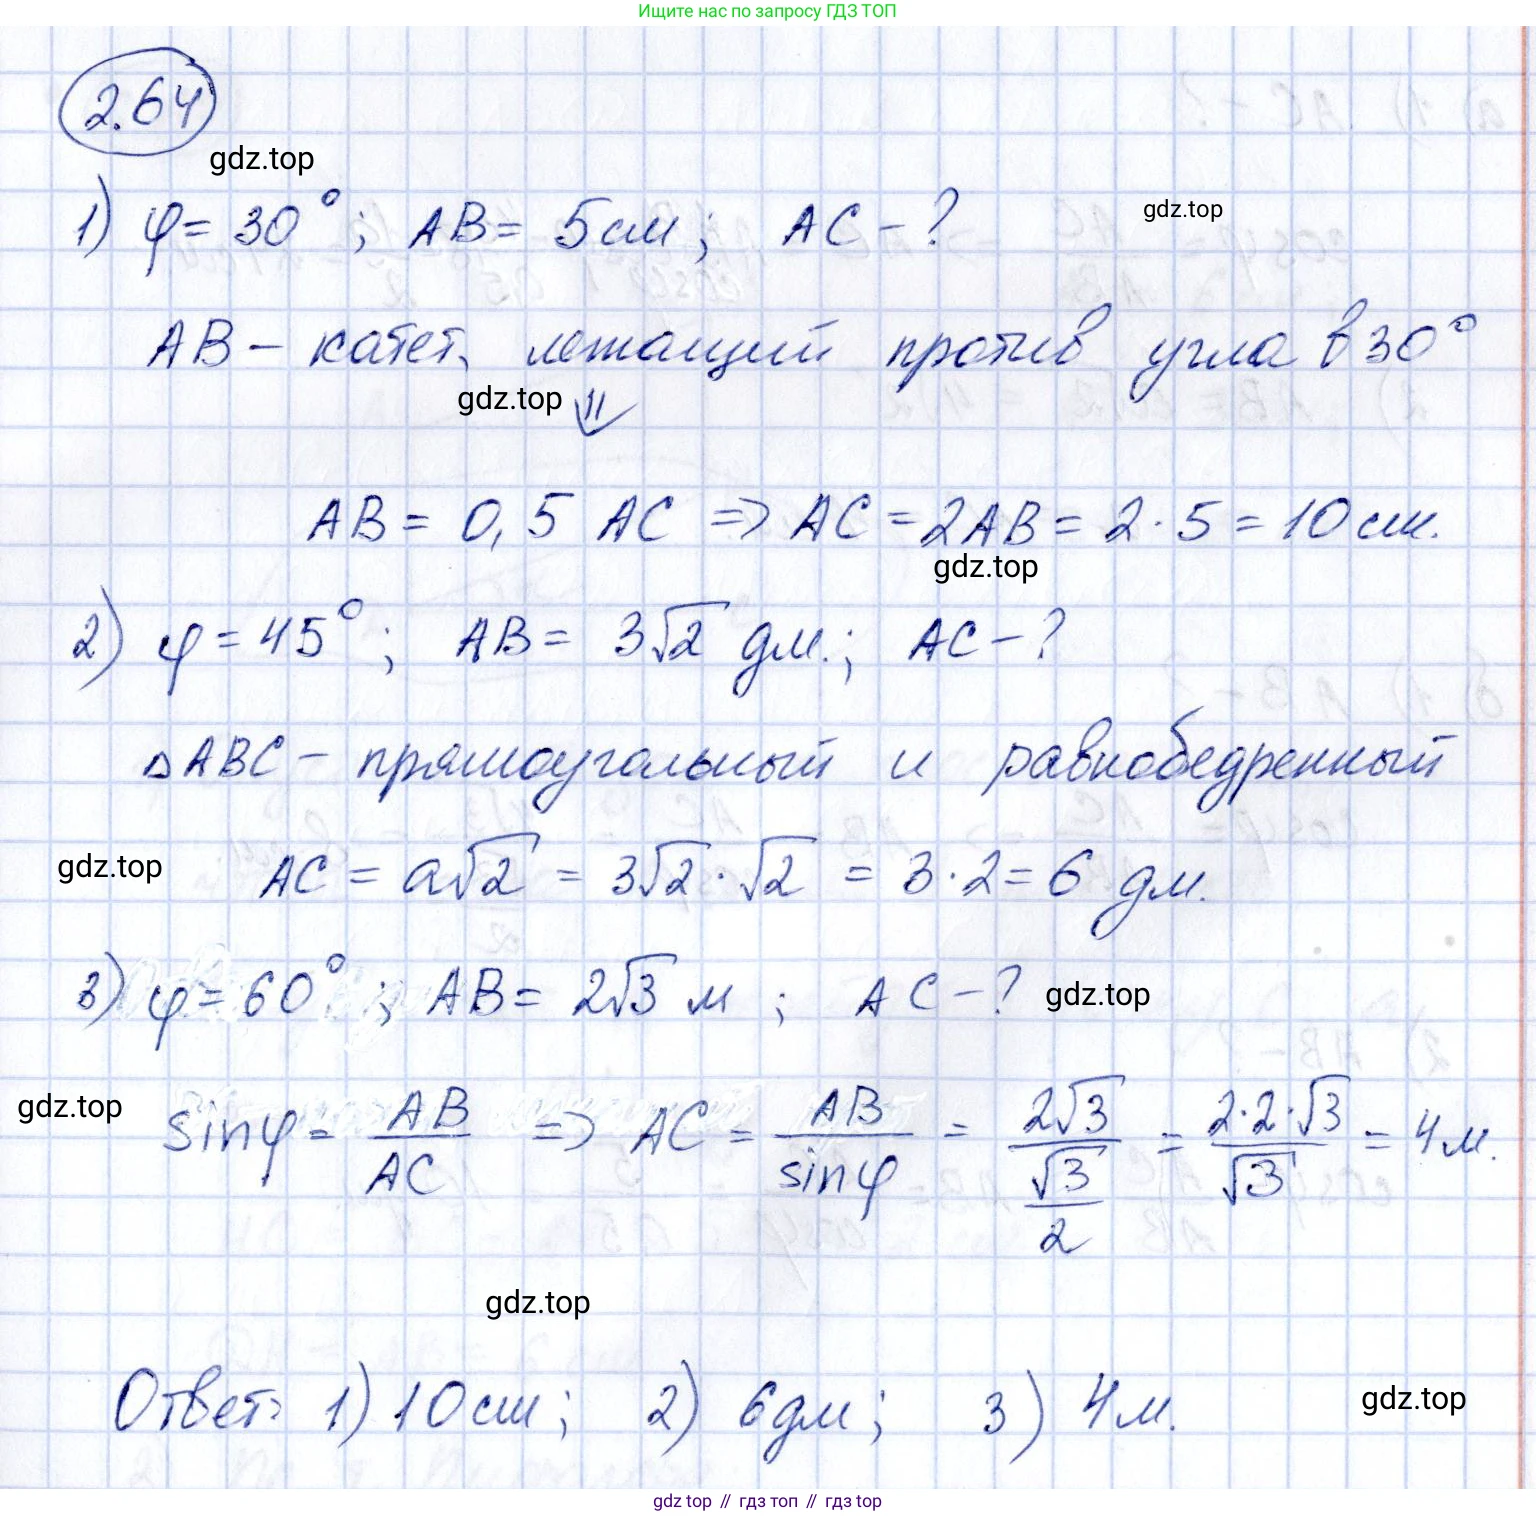 Ищите нас по запросу ГДЗ ТОП
2.64
gdz.top
1) φ = 30°; AB = 5 см; AC - ?
gdz.top
AB – катет, лежащий против угла в 30°
gdz.top ⇓
AB = 0,5 AC => AC = 2AB = 2·5 = 10 см.
gdz.top
2) φ = 45°; AB = 3√2 дм.; AC - ?
△ABC – прямоугольный и равнобедренный
gdz.top
AC = a√2 = 3√2 · √2 = 3·2 = 6 дм.
3) φ = 60°; AB = 2√3 м; AC - ?
gdz.top
gdz.top
sinφ = AB/AC => AC = AB/sinφ = 2√3/(√3/2) = 2·2·√3/√3 = 4 м.
gdz.top
Ответ: 1) 10 см; 2) 6 дм; 3) 4 м.
gdz.top
gdz top // гдз топ // гдз top